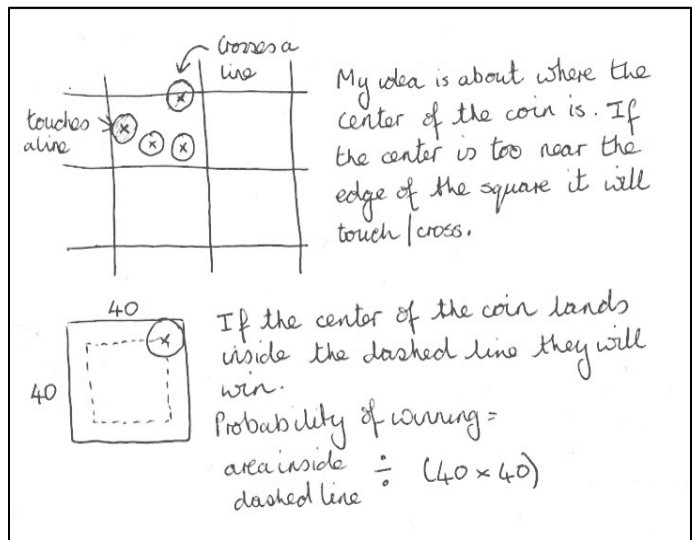 Crosses a
line
touches
a line
My idea is about where the
center of the coin is. If
the center is too near the
edge of the square it will
touch/cross.
40
40
If the center of the coin lands
inside the dashed line they will
win.
Probability of winning =
area inside ÷ (40 × 40)
dashed line